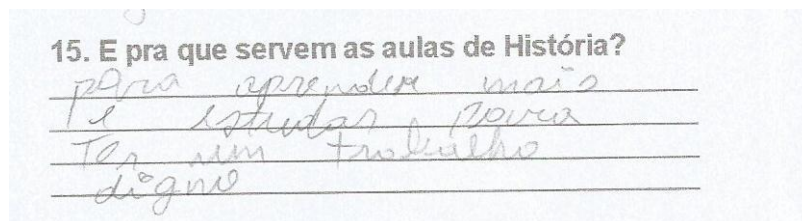 15. E pra que servem as aulas de História?
para aprender mais
e estudar para
Ter um trabalho
digno